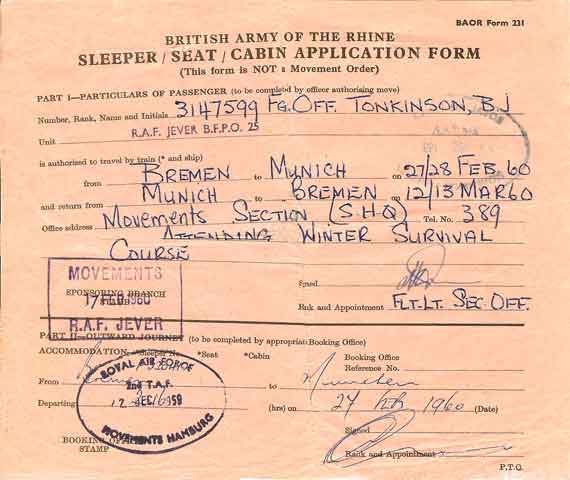 BAOR Form 231
BRITISH ARMY OF THE RHINE
SLEEPER / SEAT / CABIN APPLICATION FORM
(This form is NOT a Movement Order)
PART I—PARTICULARS OF PASSENGER (to be completed by officer authorising move)
Number, Rank, Name and Initials 3147599 FG. OFF. TONKINSON, B.J
Unit R.A.F. JEVER B.F.P.O. 25
is authorised to travel by train (* and ship)
from BREMEN to MUNICH on 27/28 FEB 60
and return from MUNICH to BREMEN on 12/13 MAR 60
Office address MOVEMENTS SECTION (SHQ) Tel. No. 389
ATTENDING WINTER SURVIVAL
COURSE
Signed
MOVEMENTS
SPONSORING BRANCH
STAMP
17 FEB 1960
R.A.F. JEVER
Rank and Appointment FLT. LT. SEC. OFF.
PART II—OUTWARD JOURNEY (to be completed by appropriate Booking Office)
ACCOMMODATION—*Sleeper No *Seat *Cabin Booking Office
Reference No.
From to München
Departing (hrs) on 27 Feb 1960 (Date)
ROYAL AIR FORCE
2nd T.A.F.
12 DEC 1959
MOVEMENTS HAMBURG
Signed
BOOKING
STAMP
Rank and Appointment
P.T.O.